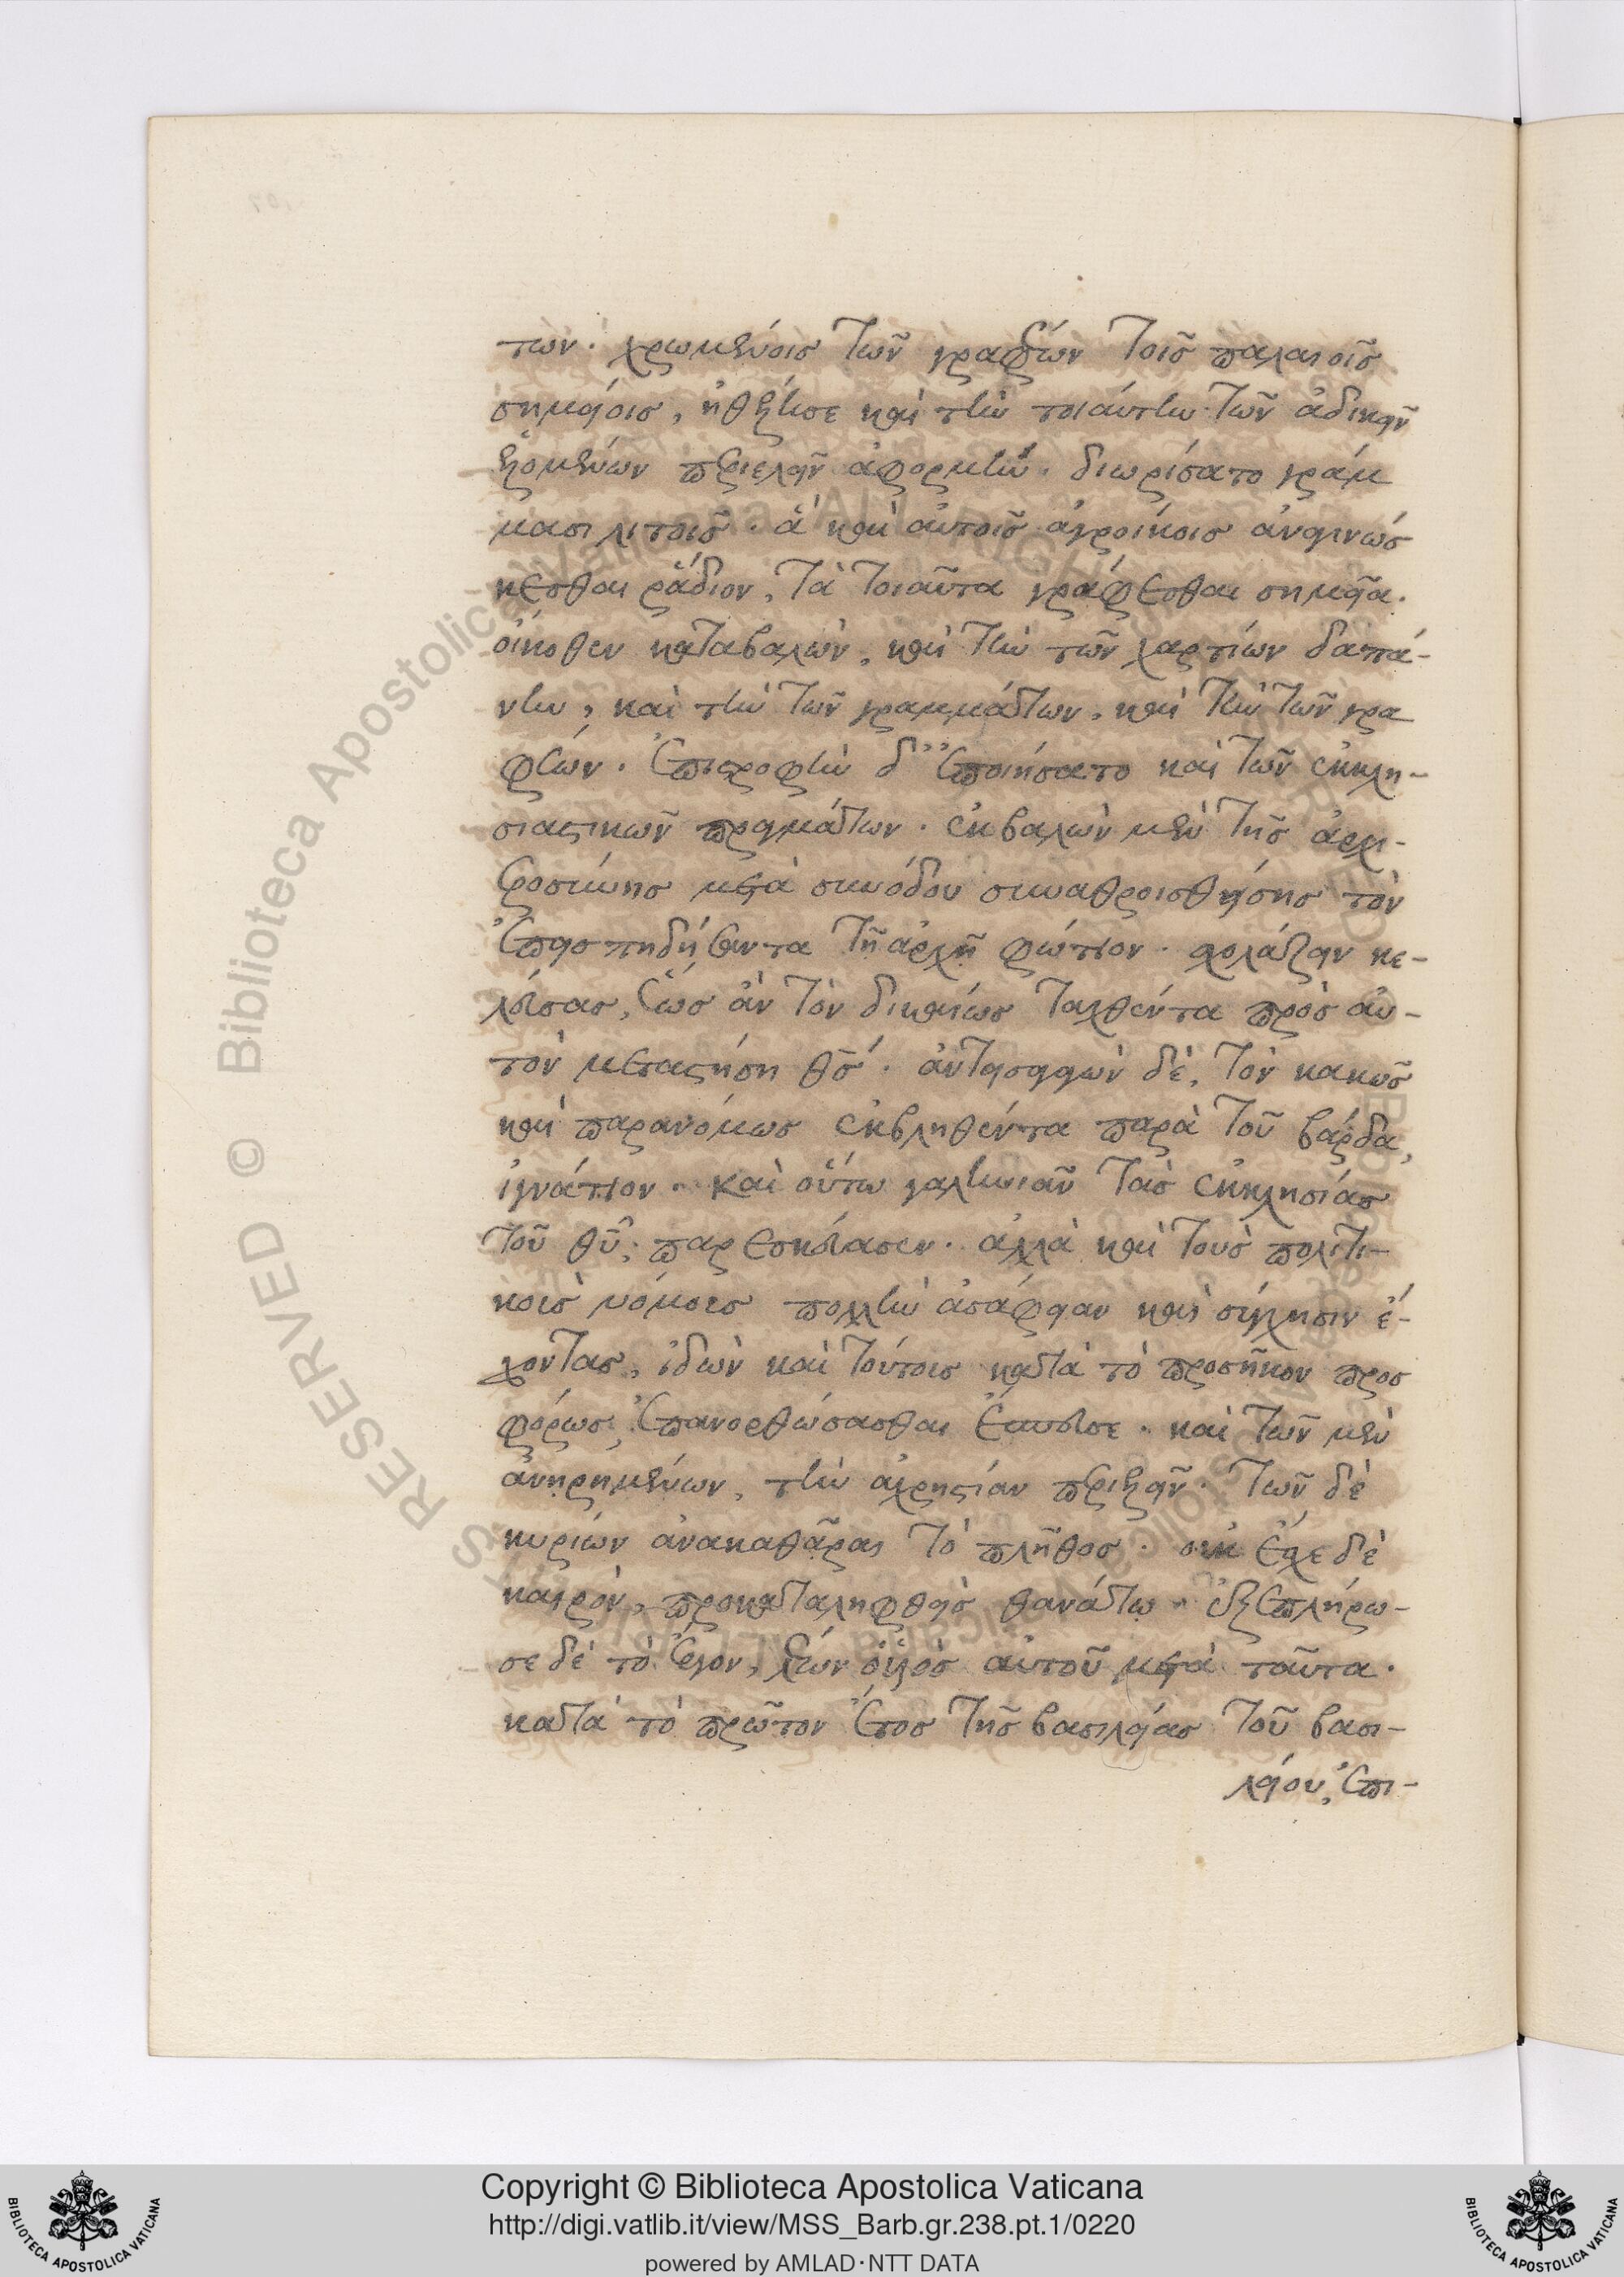 των· χρωμένοις τῶν γραφέων τοῖς παλαιοῖς
σημείοις, ἠθέλησε καὶ τὴν τοιαύτην τῶν ἀδικεῖν
ἑλομένων περιελεῖν ἀφορμήν· διωρίσατο γράμ
μασι λιτοῖς· ἃ καὶ αὐτοῖς ἀγροίκοις ἀναγινώσ
κεσθαι ῥάδιον, τὰ τοιαῦτα γράφεσθαι σημεῖα·
οἴκοθεν καταβαλὼν, καὶ τὴν τῶν χαρτίων δαπά-
νην, καὶ τὴν τῶν γραμμάτων, καὶ τὴν τῶν γρα
φέων· ἐπιστροφὴν δ' ἐποιήσατο καὶ τῶν ἐκκλη-
σιαστικῶν πραγμάτων· ἐκβαλὼν μὲν τῆς ἀρχι-
εροσύνης μετὰ συνόδου συναθροισθείσης τὸν
ἐπεισπηδήσαντα τῇ ἀρχῇ φώτιον· σχολάζειν κε-
λεύσας, ἕως ἂν τὸν δικαίως ταχθέντα πρὸς αὑ-
τὸν μεταστήσῃ θς· ἀντεισαγαγὼν δὲ, τὸν κακῶς
καὶ παρανόμως ἐκβληθέντα παρὰ τοῦ βάρδα,
ἰγνάτιον· καὶ οὕτω γαληνιᾶν τὰς ἐκκλησίας
τοῦ θῦ, παρεσκεύασεν· ἀλλὰ καὶ τοὺς πολιτι-
κοὺς νόμους πολλὴν ἀσάφειαν καὶ σύγχυσιν ἔ-
χοντας, ἰδὼν καὶ τούτοις κατὰ τὸ προσῆκον προσ
φόρως, ἐπανορθώσασθαι ἔσπευσε· καὶ τῶν μὲν
ἀνῃρημένων, τὴν ἀχρηστίαν περιελεῖν· τῶν δὲ
κυρίων ἀνακαθᾶραι τὸ πλῆθος· οὐκ ἔσχε δὲ
καιρὸν, προκαταληφθεὶς θανάτῳ· ἐξεπλήρω-
σε δὲ τὸ ἔργον, λέων ὁ υἱὸς αὐτοῦ μετὰ ταῦτα·
κατὰ τὸ πρῶτον ἔτος τῆς βασιλείας τοῦ βασι-
λείου, ἐπι-
Copyright © Biblioteca Apostolica Vaticana
http://digi.vatlib.it/view/MSS_Barb.gr.238.pt.1/0220
powered by AMLAD·NTT DATA